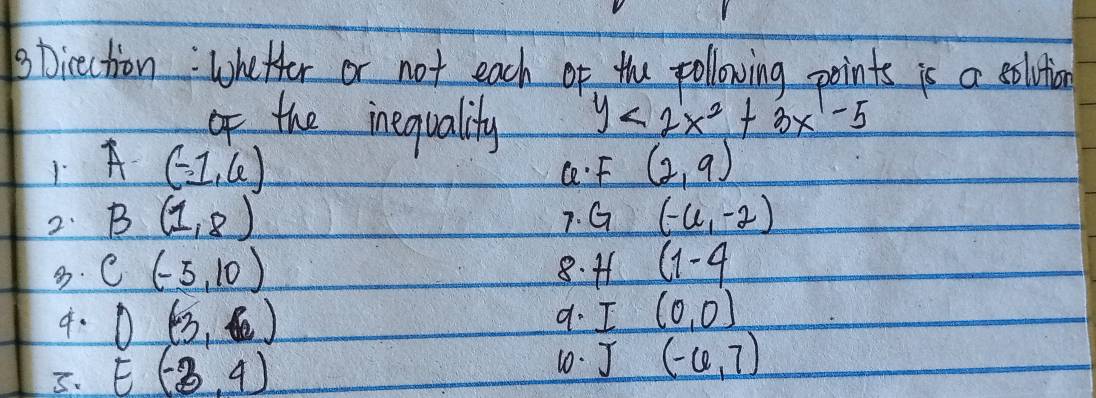 3 Direction : Whether or not each of the following points is a solution
of the inequality y < 2x² + 3x - 5
1. A (-1,6)
2. B (1,8)
3. C (-5,10)
4. D (-3, 6)
5. E (-3, 4)
6. F (2,9)
7. G (-6,-2)
8. H (1-4
9. I (0,0)
10. J (-6,7)